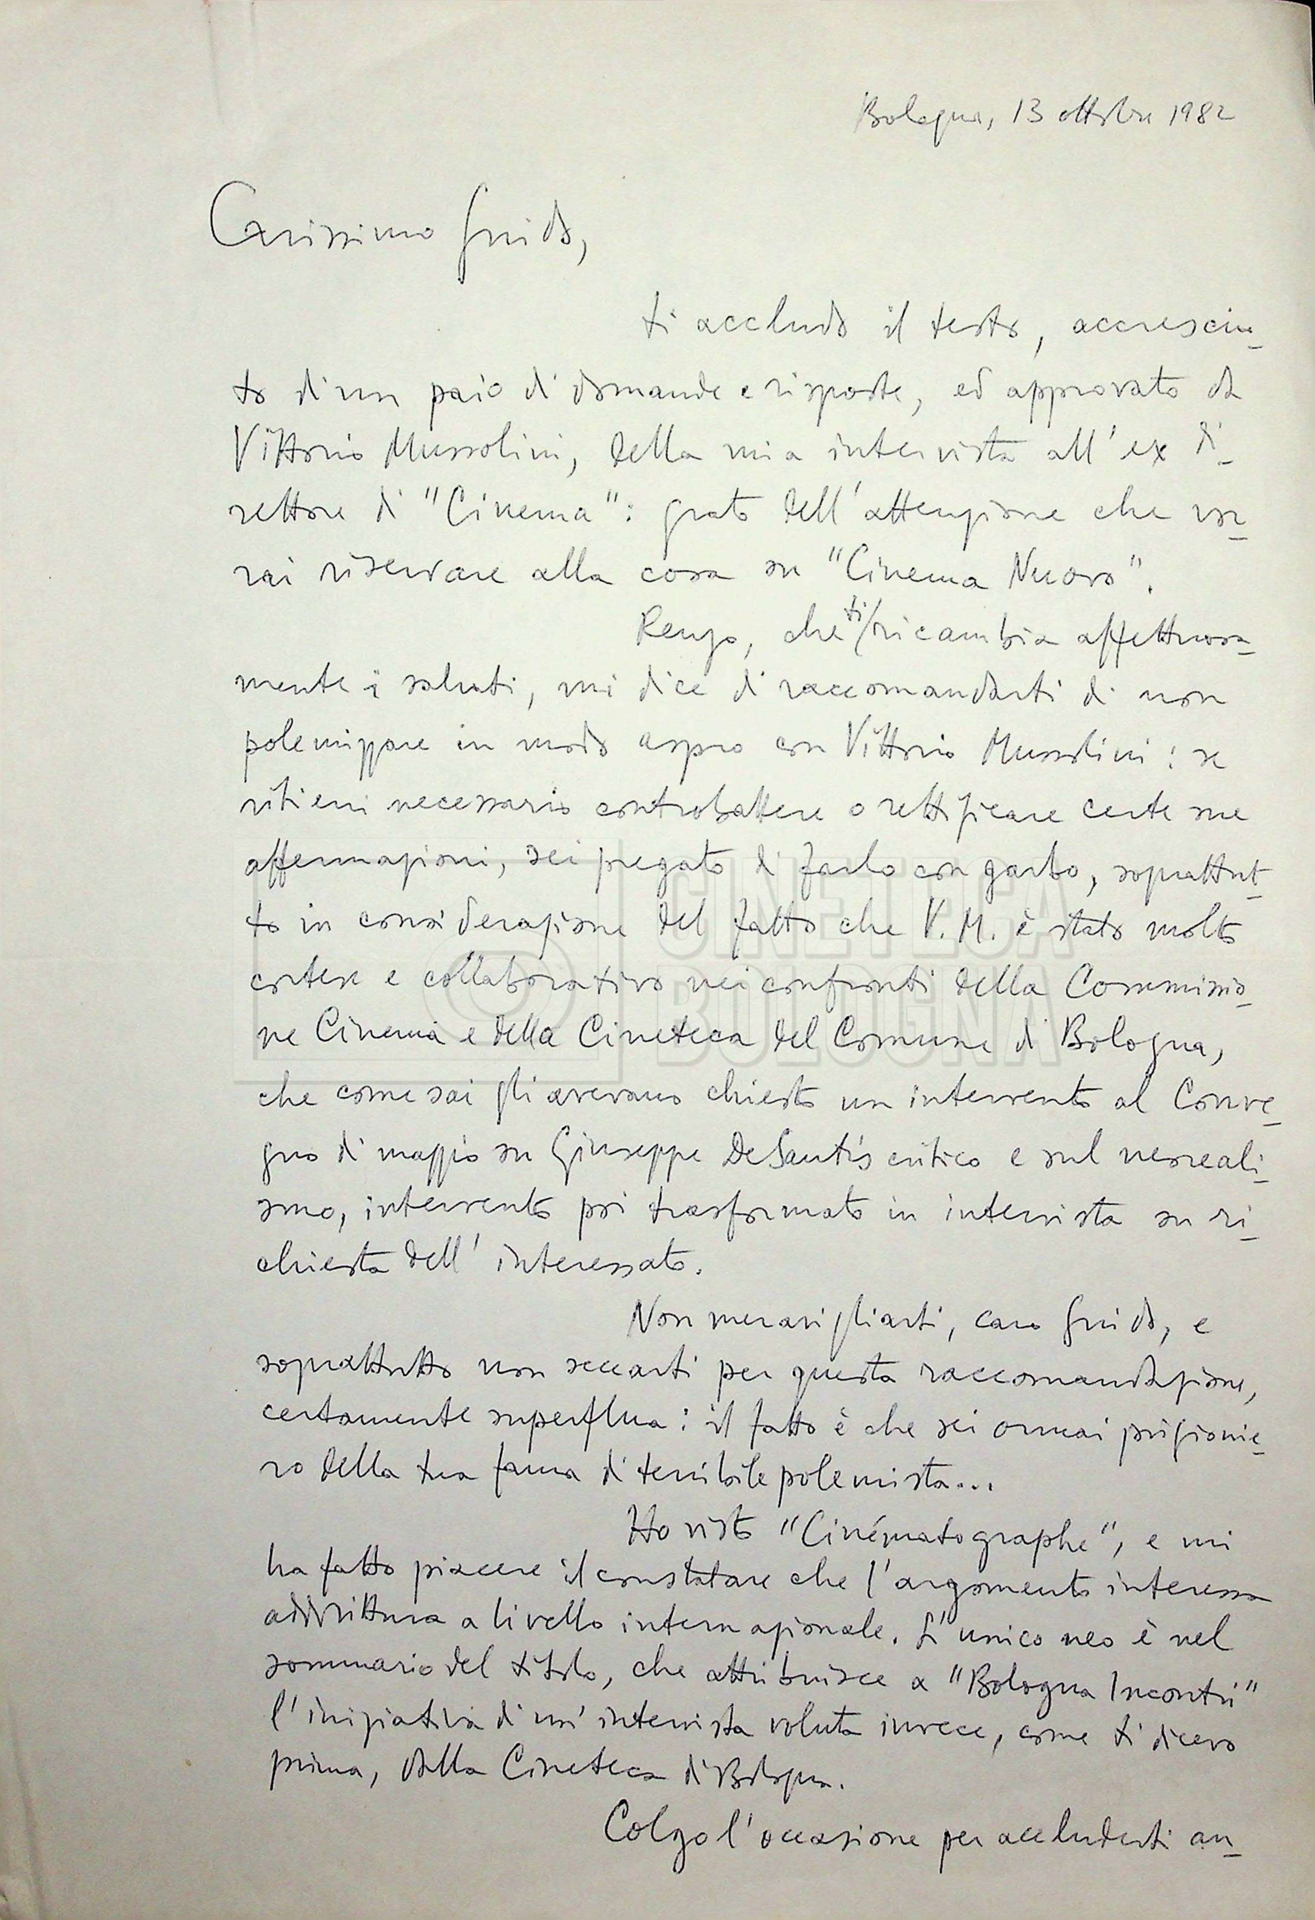 Bologna, 13 ottobre 1982
Carissimo Guido,
ti accludo il testo, accresciu-
to di un paio di domande e risposte, ed approvato da
Vittorio Mussolini, della mia intervista all'ex di-
rettore di "Cinema": grato dell'attenzione che vor-
rai riservare alla cosa su "Cinema Nuovo".
Renzo, che ti ricambia affettuosa-
mente i saluti, mi dice di raccomandarti di non
polemizzare in modo aspro con Vittorio Mussolini: se
ritieni necessario controbattere o rettificare certe sue
affermazioni, sei pregato di farlo con garbo, soprattut-
to in considerazione del fatto che V. M. è stato molto
cortese e collaborativo nei confronti della Commissio-
ne Cinema e della Cineteca del Comune di Bologna,
che come sai gli avevano chiesto un intervento al Conve-
gno di maggio su Giuseppe De Santis critico e sul neoreali-
smo, intervento poi trasformato in intervista su ri-
chiesta dell'interessato.
Non meravigliarti, caro Guido, e
soprattutto non seccarti per questa raccomandazione,
certamente superflua: il fatto è che sei ormai prigionie-
ro della tua fama di terribile polemista...
Ho visto "Cinématographe", e mi
ha fatto piacere il constatare che l'argomento interessa
addirittura a livello internazionale. L'unico neo è nel
sommario del titolo, che attribuisce a "Bologna Incontri"
l'iniziativa di un'intervista voluta invece, come ti dicevo
prima, dalla Cineteca di Bologna.
Colgo l'occasione per accluderti an-
CINETECA
BOLOGNA